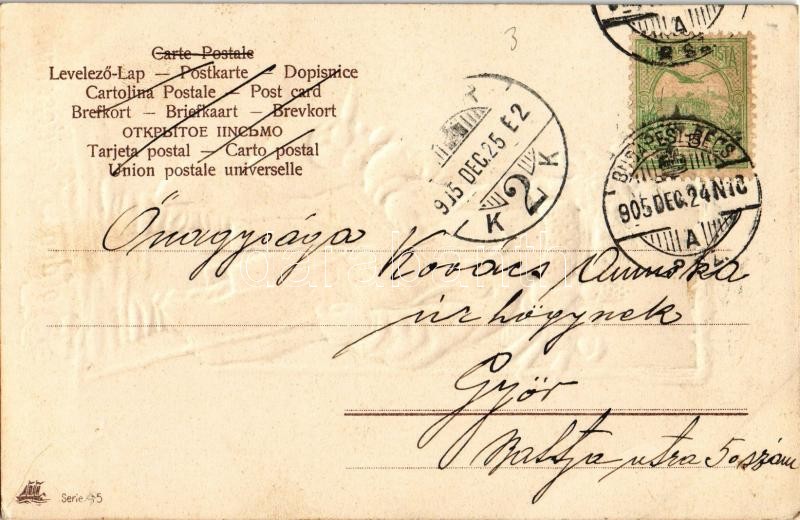 3
Carte Postale
Levelező-Lap — Postkarte — Dopisnice
Cartolina Postale — Post card
Brefkort — Briefkaart — Brevkort
ОТКРЫТОЕ ПИСЬМО
Tarjeta postal — Carto postal
Union postale universelle
905 DEC. 25 E 2
K 2 K
A
BUDAPEST
905 DEC. 24 N 18
A
Őnagysága Kovács Annuska
úrhölgynek
Győr
utza 5. szám
Serie 45